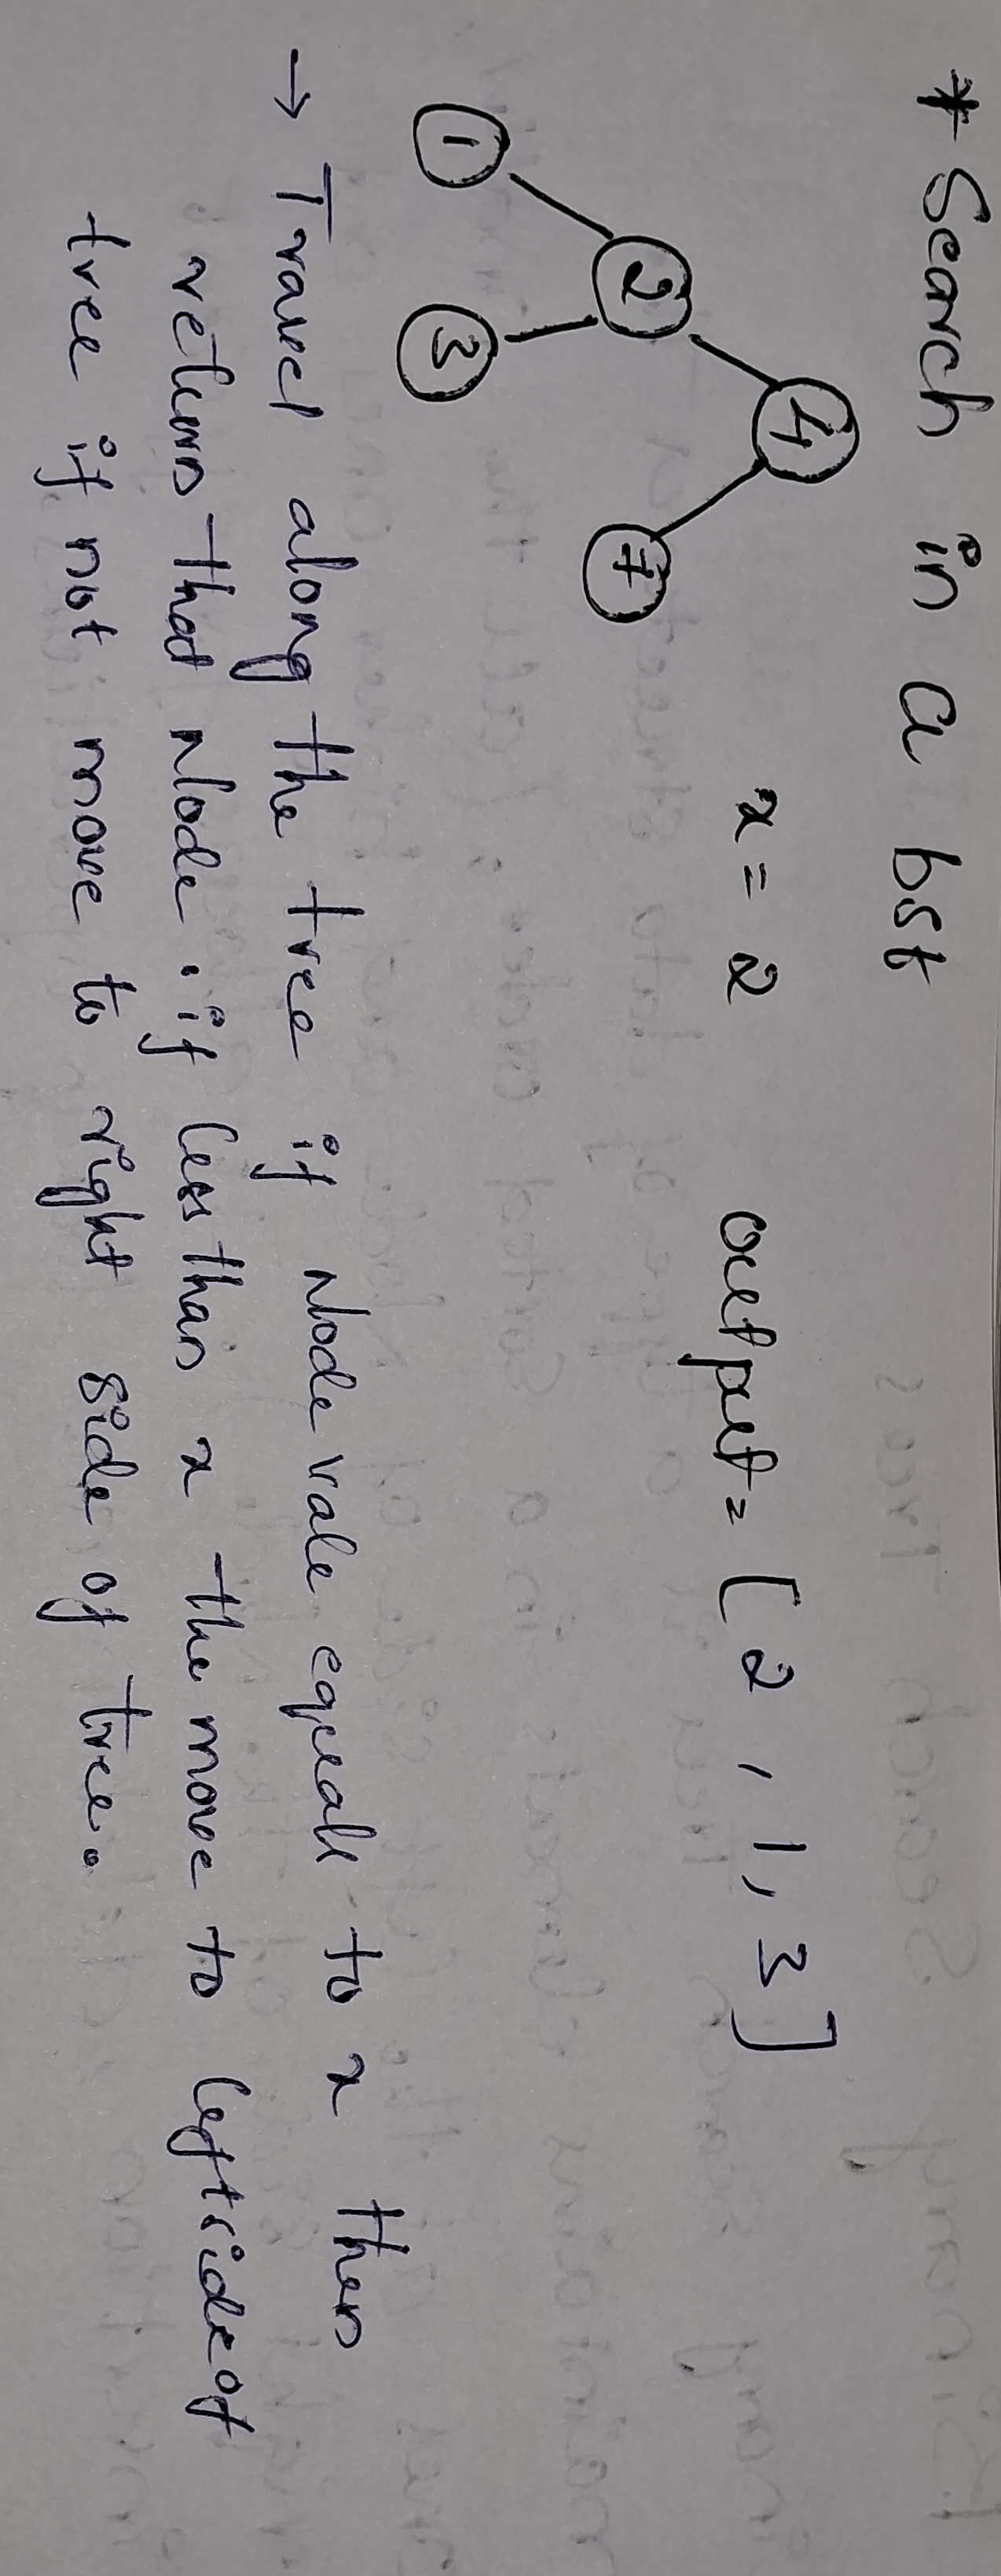 * Search in a bst
4
x = 2 output = [2, 1, 3]
2 7
1 3
→ Travel along the tree if Node vale equals to x then
return that Node. if less than x the move to left side of
tree if not move to right side of tree.